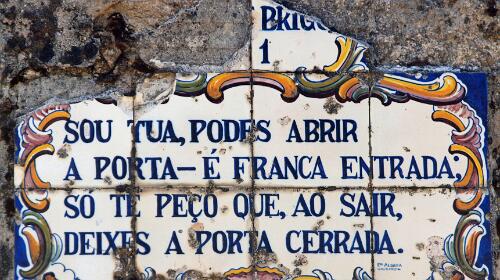 1
SOU TUA, PODES ABRIR
A PORTA — É FRANCA ENTRADA;
SÓ TE PEÇO QUE, AO SAIR,
DEIXES A PORTA CERRADA.